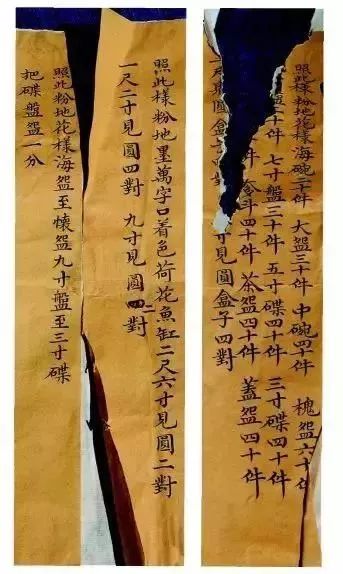 照此樣粉地花樣海碗二十件 大盌三十件 中碗四十件 槐盌六十件
十件 七寸盤三十件 五寸碟四十件 三寸碟四十件
四十件 茶盌四十件 蓋盌四十件
寸見圓盒子四對
照此樣粉地墨萬字口着色荷花魚缸二尺六寸見圓二對
一尺二寸見圓四對 九寸見圓四對
照此粉地花樣海盌至懷盌九寸盤至三寸碟
把碟盤盌一分